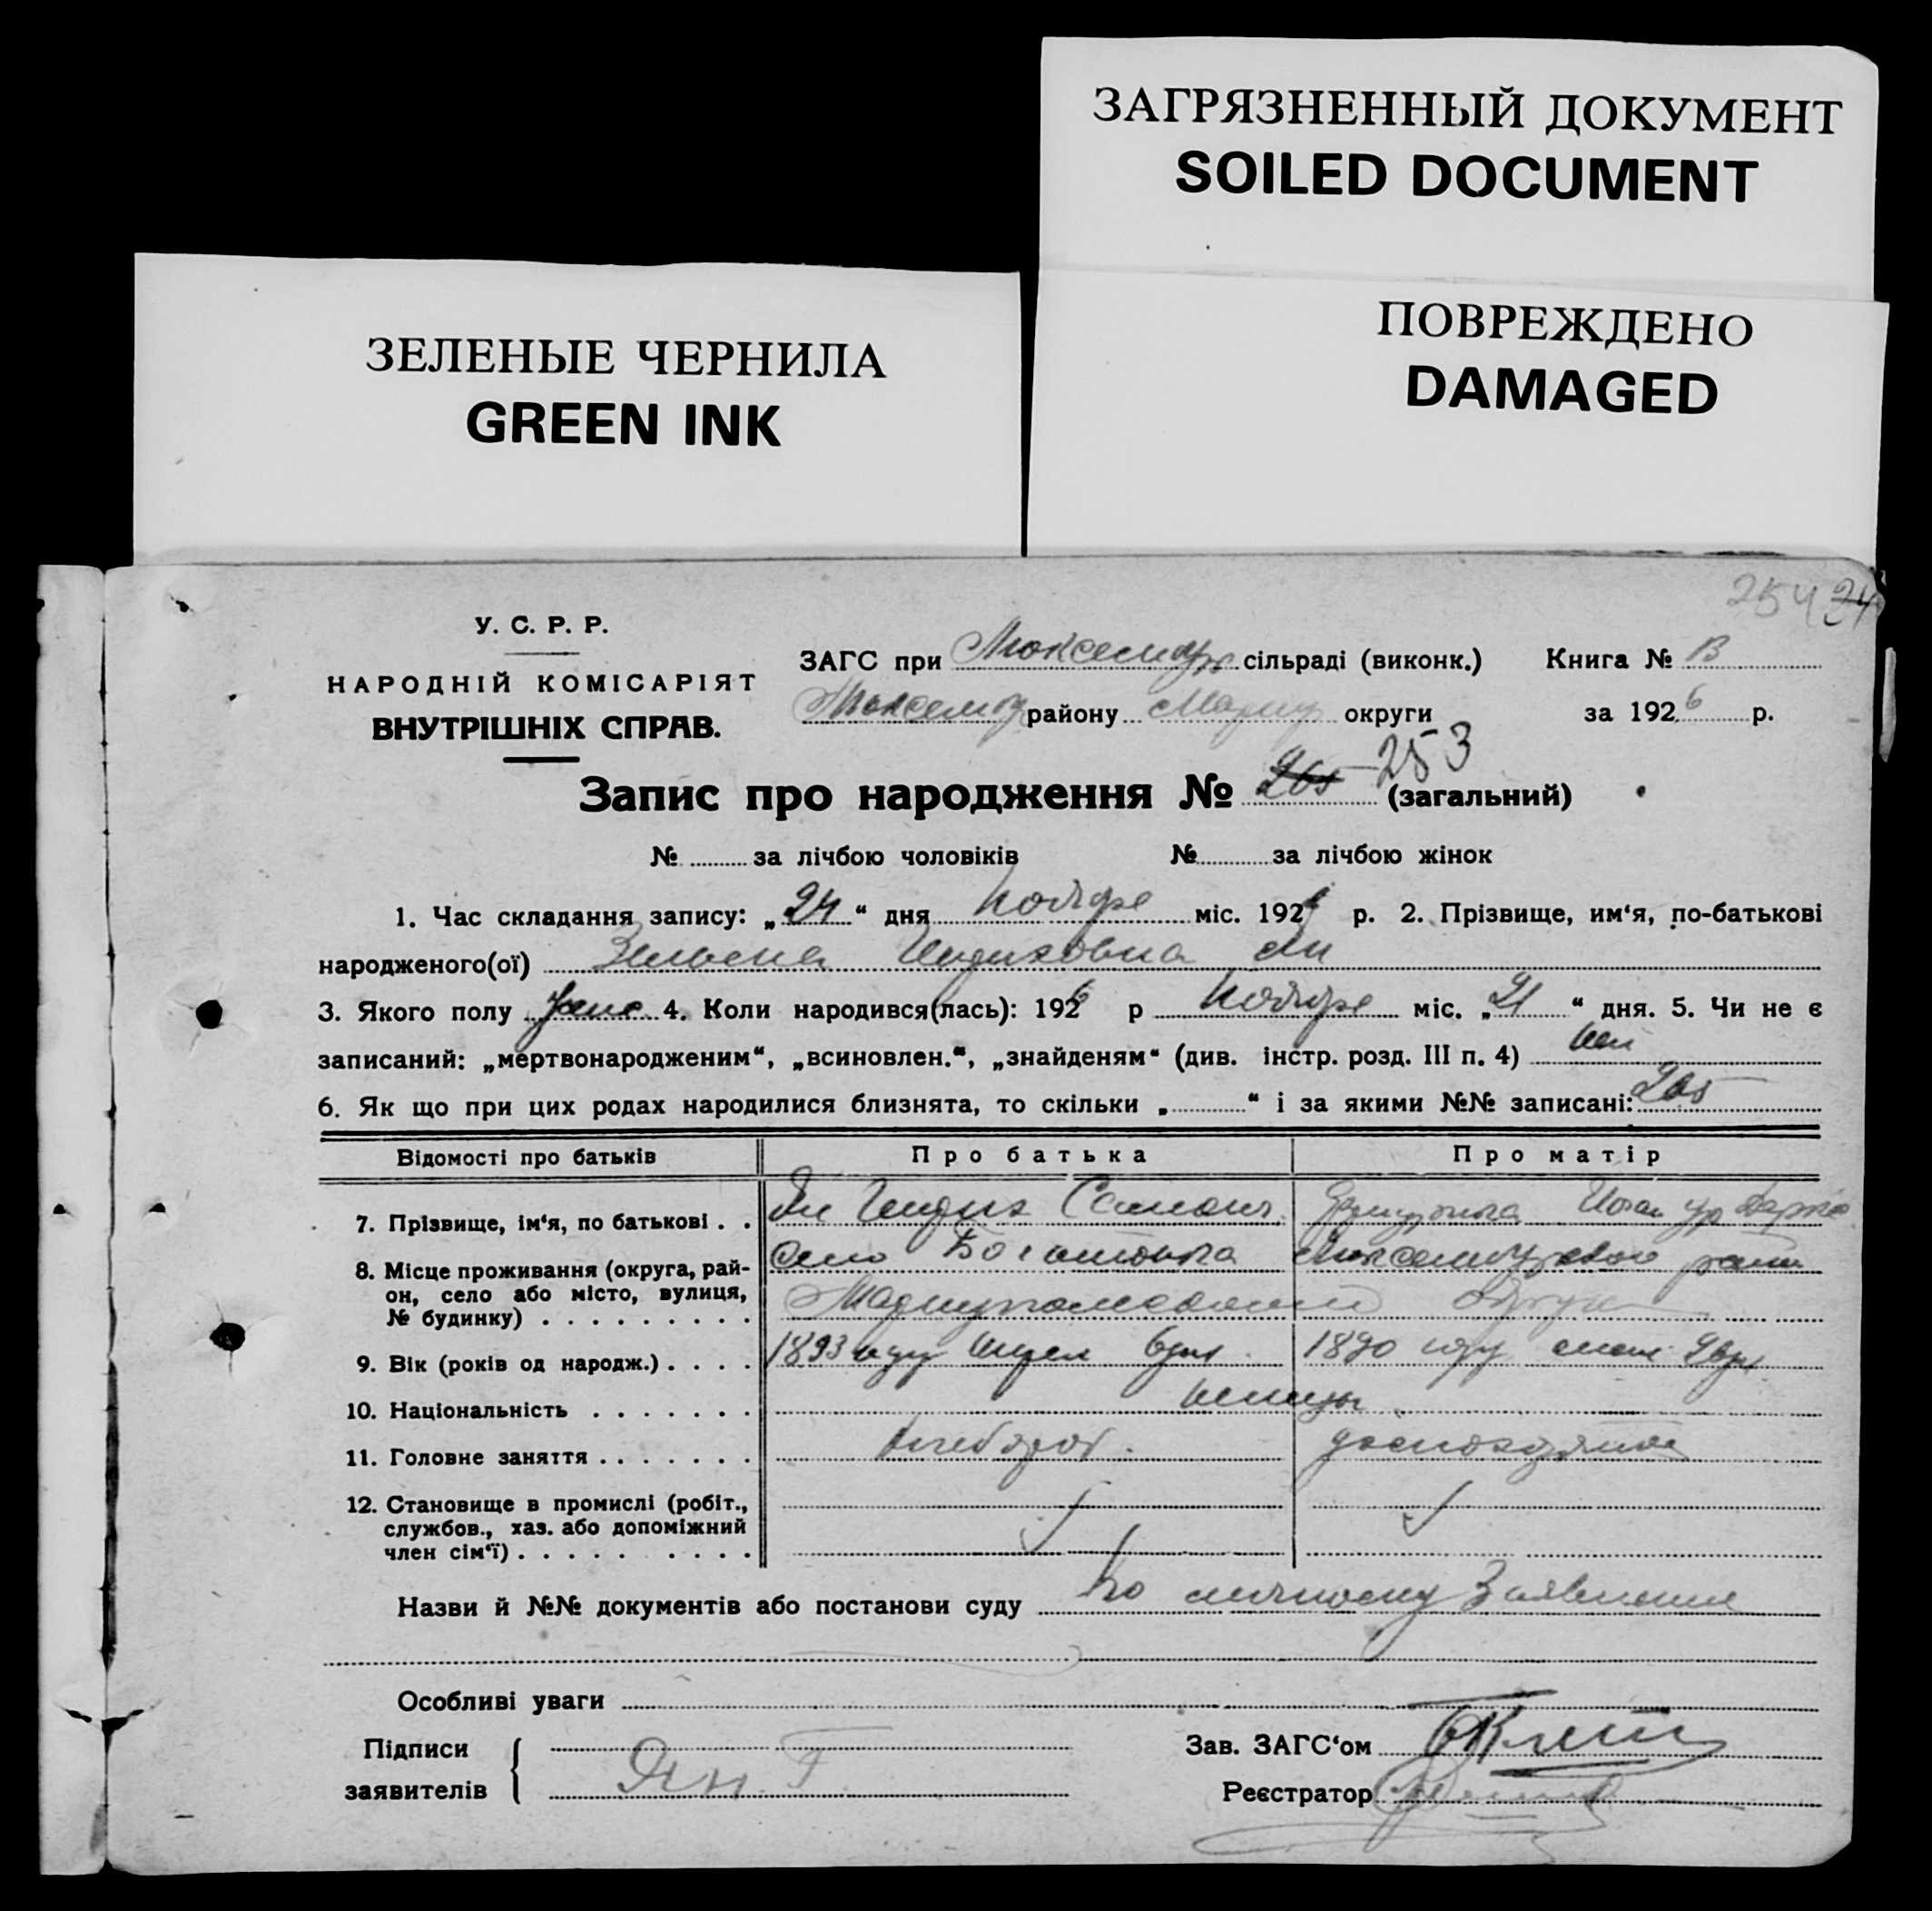 ЗАГРЯЗНЕННЫЙ ДОКУМЕНТ
SOILED DOCUMENT
ЗЕЛЕНЫЕ ЧЕРНИЛА
GREEN INK
ПОВРЕЖДЕНО
DAMAGED
254 24
У. С. Р. Р.
НАРОДНІЙ КОМІСАРІЯТ
ВНУТРІШНІХ СПРАВ.
ЗАГС при Люксембур сільраді (виконк.) Книга № В
Люксембур району Мариу округи за 1926 р.
Запис про народження № 265 253 (загальний)
№ за лічбою чоловіків № за лічбою жінок
1. Час складання запису: „24“ дня Ноября міс. 1926 р. 2. Прізвище, им‘я, по-батькові
народженого(ої) Ян
3. Якого полу Жене 4. Коли народився(лась): 1926 р Ноября міс. „21“ дня. 5. Чи не є
записаний: „мертвонародженим“, „всиновлен.“, „знайденям“ (див. інстр. розд. III п. 4) Нет
6. Як що при цих родах народилися близнята, то скільки „ “ і за якими №№ записані: 265
Відомості про батьків Про батька Про матір
7. Прізвище, ім‘я, по батькові . . Ян
8. Місце проживання (округа, рай-он, село або місто, вулиця, № будинку) село Люксембургского
Мариупольского
9. Вік (років од народж.) 1893 году 1890 году
10. Національність Немцы
11. Головне заняття Хлебороб. домохозяйка
12. Становище в промислі (робіт., службов., хаз. або допоміжний член сім‘ї)
Назви й №№ документів або постанови суду По личному Заявлению
Особливі уваги
Підписи заявителів Ян. Г
Зав. ЗАГС‘ом
Реєстратор